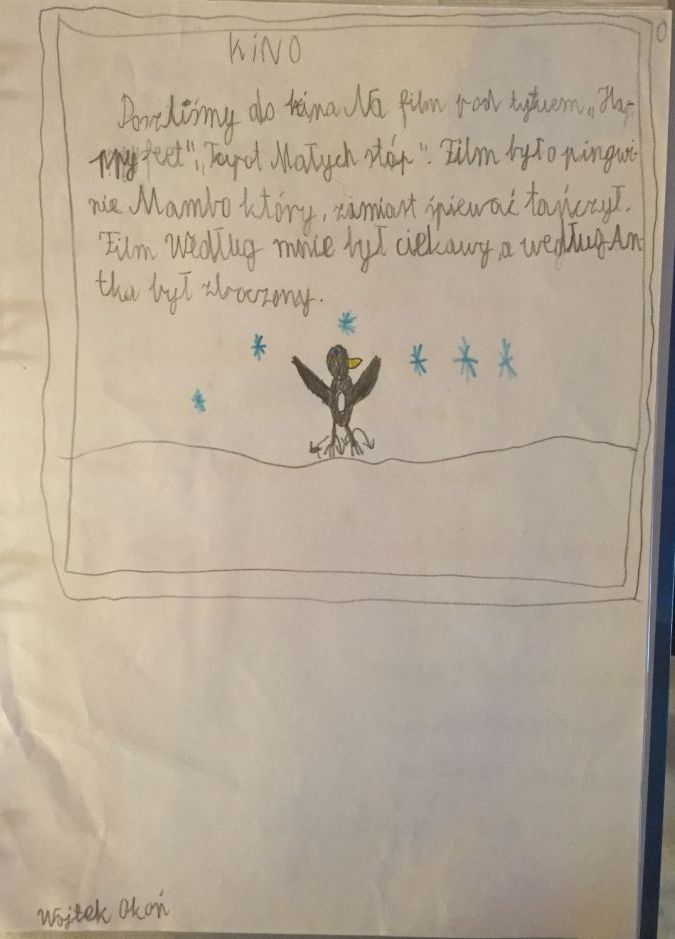 KINO
Poszliśmy do kina Na film pod tytułem „Ha-
ppy feet", „Tupot Małych stóp". Film był o pingwi-
nie Mambo który, zamiast śpiewać tańczył.
Film Według mnie był ciekawy, a według An
tka był zboczony.
Wojtek Okoń